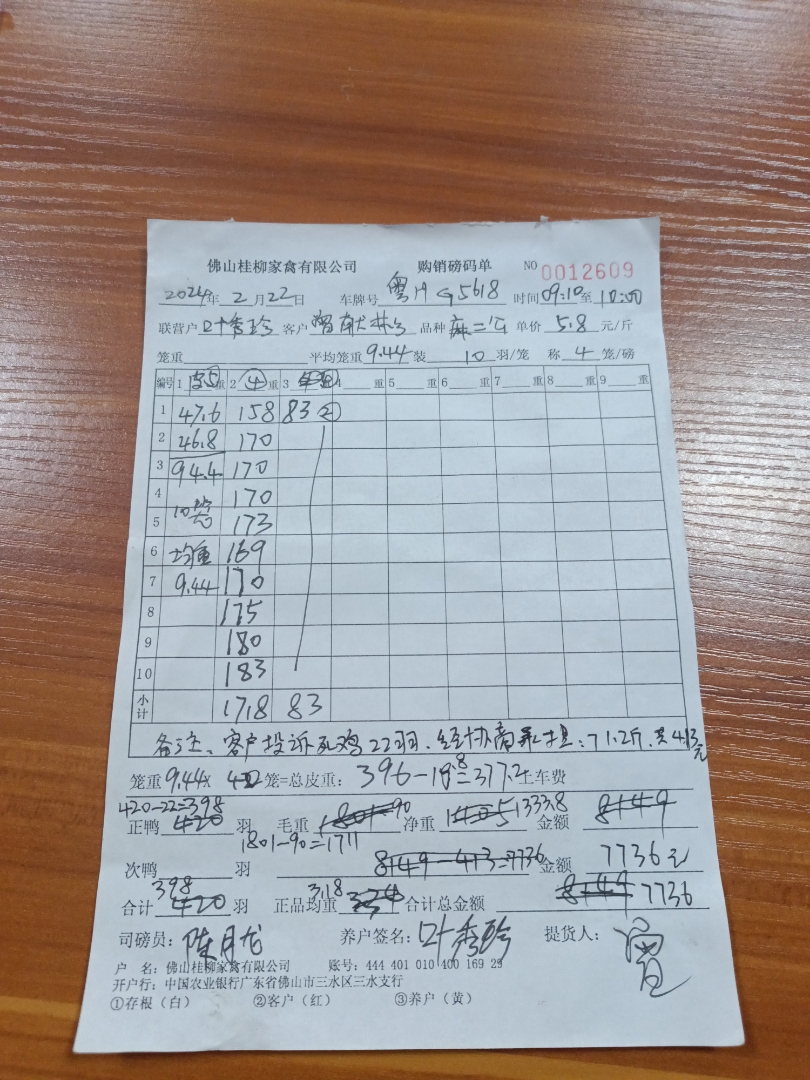 佛山桂柳家禽有限公司 购销磅码单 NO 0012609
2024年 2月22日 车牌号 粤H G5618 时间09:10至10:00
联营户 叶秀珍 客户 品种 麻二公 单价 5.8 元/斤
笼重 平均笼重 9.44 装 10 羽/笼 称 4 笼/磅
编号 1 重 2 ④ 重 3 重 4 重 5 重 6 重 7 重 8 重 9 重
1 47.6 158 83 ②
2 46.8 170
3 94.4 170
4 170
5 10笼 173
6 均重 169
7 9.44 170
8 175
9 180
10 183
小计 1718 83
备注、客户投诉死鸡22羽.经协商承担:71.2斤.共413元
笼重 9.44× 42 笼=总皮重: 396-18.8=377.2 上车费
420-22=398
正鸭 420 羽 毛重 1801-90 净重 1405 1333.8 金额 8149
1801-90=1711
次鸭 羽 8149-413=7736 金额 7736元
398 3.18
合计 420 羽 正品均重 3.34 合计总金额 8149 7736
司磅员: 陈月龙 养户签名: 叶秀珍 提货人:
户 名: 佛山桂柳家禽有限公司 账号: 444 401 010 400 169 29
开户行: 中国农业银行广东省佛山市三水区三水支行
①存根(白) ②客户(红) ③养户(黄)